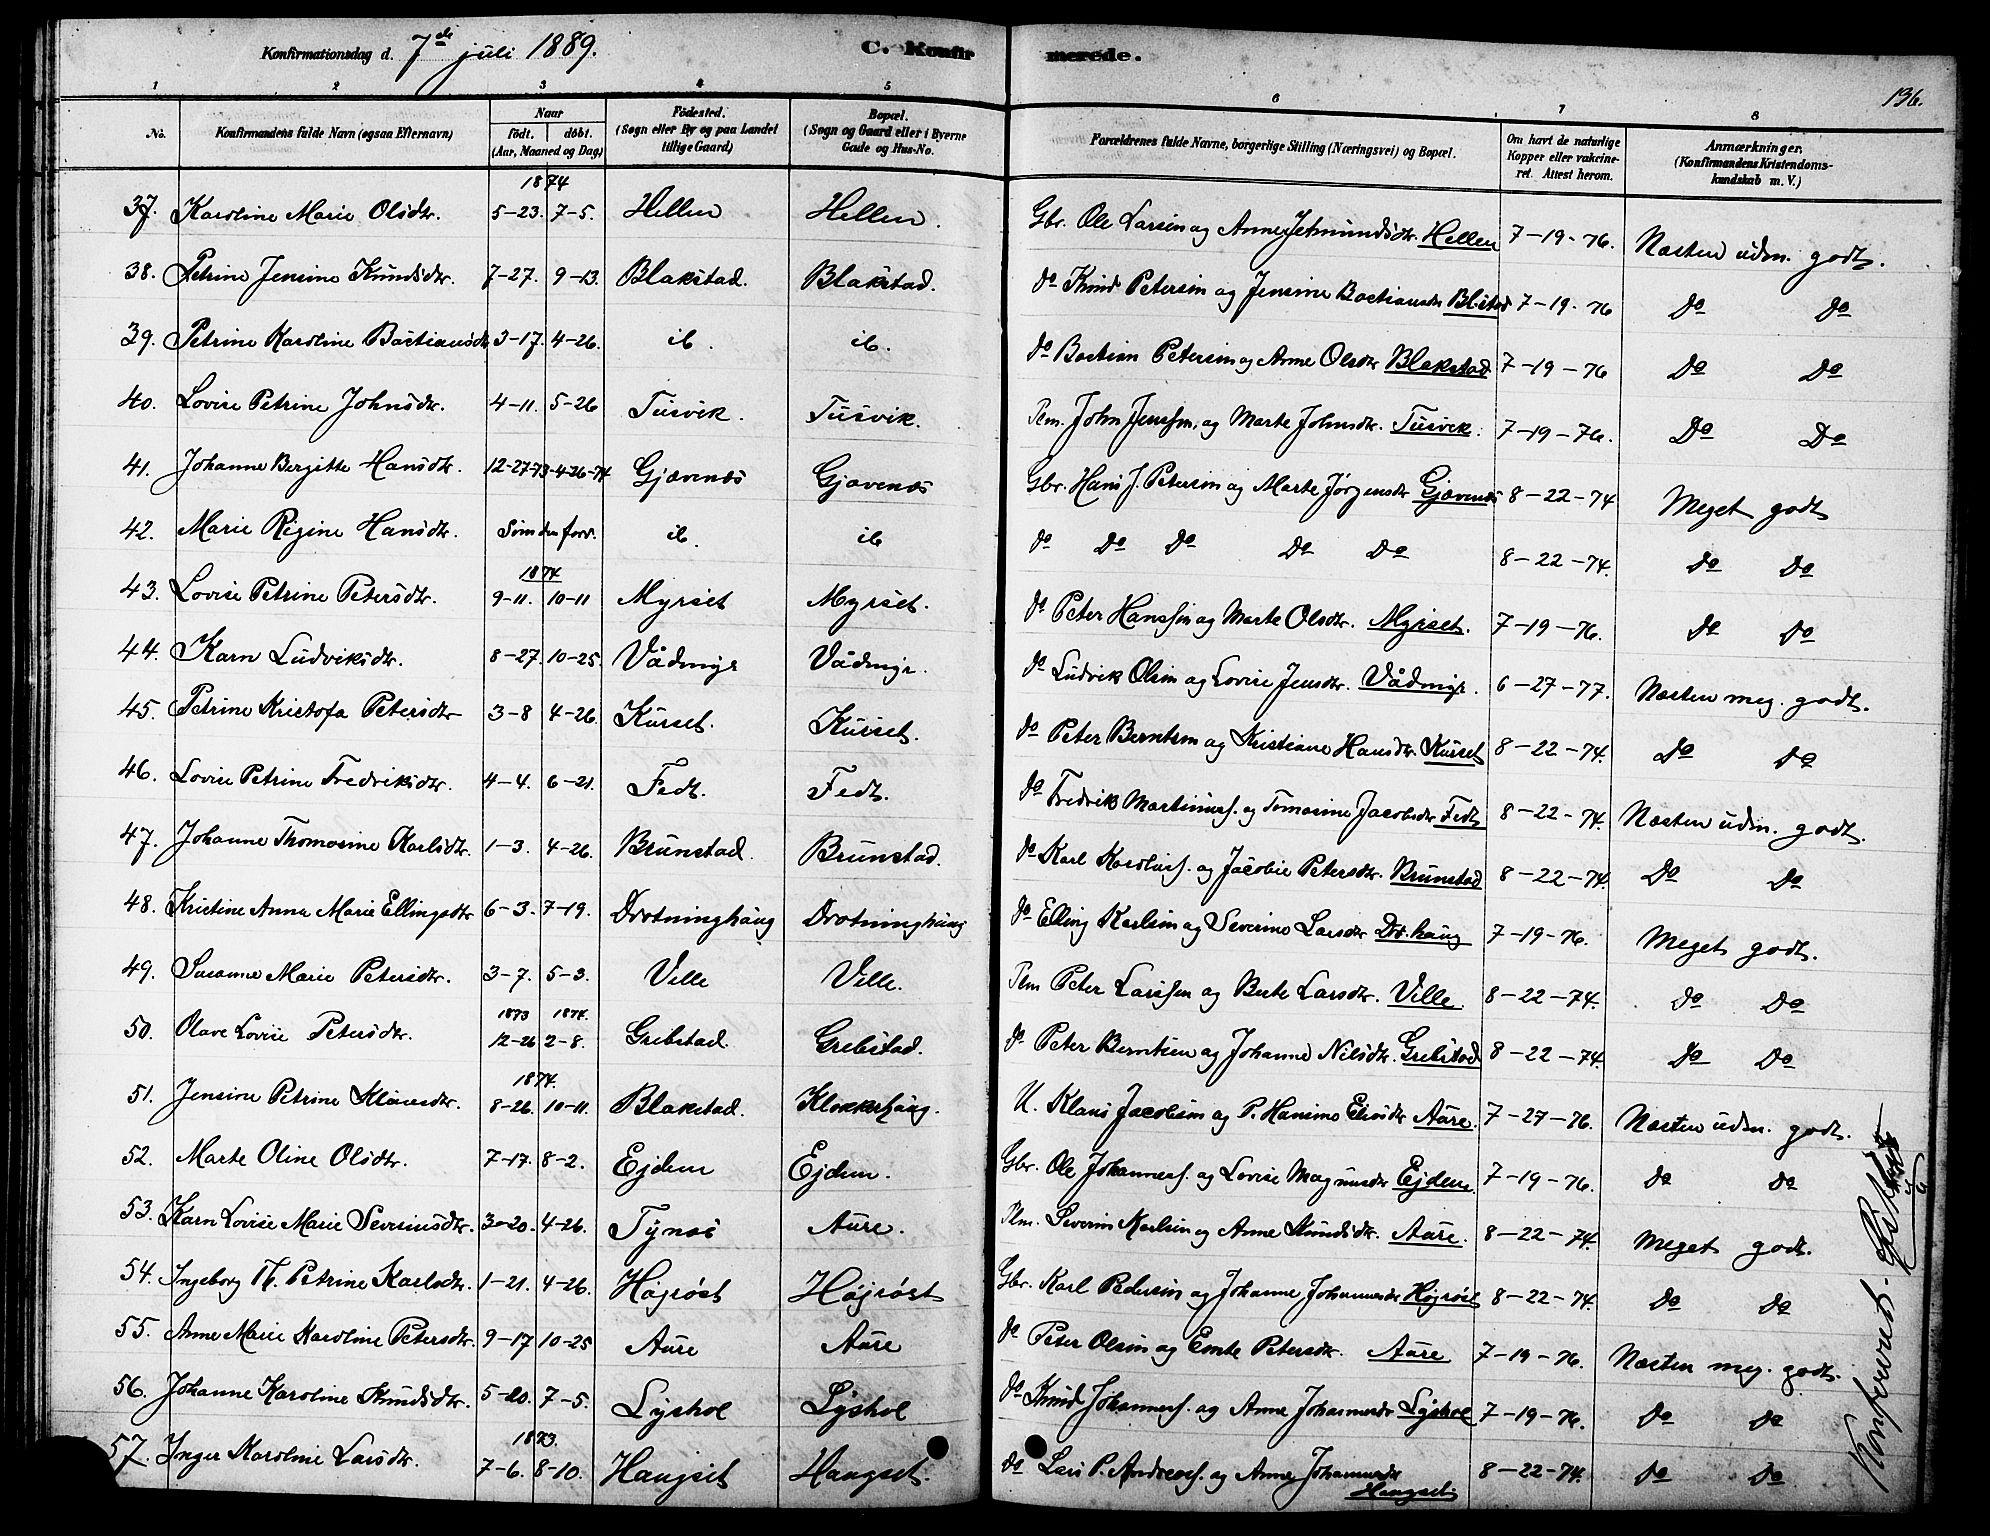 Konfirmationsdag d. 7de juli 1889.
C. Konfirmerede.
136.
1 2 3 4 5 6 7 8
No. Konfirmandens fulde Navn (ogsaa Efternavn) Naar født. døbt. (Aar, Maaned og Dag) Fødested. (Sogn eller By og paa Landet tillige Gaard) Bopæl. (Sogn og Gaard eller i Byerne Gade og Hus-No. Forældrenes fulde Navne, borgerlige Stilling (Næringsvei) og Bopæl. Om havt de naturlige Kopper eller vakcineret. Attest herom. Anmærkninger. (Konfirmandens Kristendomskundskab m. V.)
1874
37. Karoline Marie Olsdtr. 5-23. 7-5. Hellen Hellen. Gbr. Ole Larsen og Anne Jetmundsdtr. Hellen 7-19-76. Næsten udm. godt.
38. Petrine Jensine Knudsdtr. 7-27. 9-13. Blakstad. Blakstad. do Knud Petersen og Jensine Bastiansdtr Bl.stad 7-19-76 Do Do
39. Petrine Karoline Bastiansdtr 3-17. 4-26. ib. ib. do Bastian Petersen og Anne Olsdtr Blakstad 7-19-76 Do Do
40. Lovise Petrine Johnsdtr. 4-11. 5-26 Tusvik. Tusvik. Plm. John Jenssen og Marte Johnsdtr. Tusvik. 7-19-76. Do Do
41. Johanne Bergitte Hansdtr. 12-27-73 4-26-74 Gjævenæs Gjævenæs Gbr. Hans J. Petersen og Marte Jørgensdtr Gjævenæs 8-22-74 Meget godt
42. Marie Regine Hansdtr. Som den forr. ib. ib do Do Do Do Do 8-22-74. Do Do
1874
43. Lovise Petrine Petersdtr. 9-11. 10-11 Myrset Myrset. do Peter Hanssen og Marte Olsdtr. Myrset. 7-19-76. Do Do
44. Karn Ludviksdtr. 8-27. 10-25. Vådmyr Vådmyr. do Ludvik Olsen og Lovise Jensdtr. Vådmyr. 6-27-77. Næsten meg. godt.
45. Petrine Kristofa Petersdtr 3-8 4-26. Kurset. Kurset. do Peter Berntsen og Kristiane Hansdtr. Kurset 8-22-74. Do Do
46. Lovise Petrine Fredriksdtr. 4-4. 6-21. Fedt. Fedt. do Fredrik Martinuss. og Tomasine Jacobsdtr Fedt 8-22-74. Næsten udm. godt.
47. Johanne Thomasine Karlsdtr. 1-3. 4-26. Brunstad. Brunstad. do Karl Karolius. og Jacobie Petersdtr. Brunstad 8-22-74. Do Do
48. Kristine Anna Marie Ellingsdtr 6-3. 7-19. Drotninghaug Drotninghaug do Elling Karlsen og Severine Larsdtr Dr.haug 7-19-76. Meget godt.
49. Susanne Marie Petersdtr. 3-7. 5-3. Velle Velle. Plm Peter Larssen og Berte Larsdtr. Velle. 8-22-74. Do Do
1873 1874.
50. Olave Lovise Petersdtr. 12-26 2-8. Grebstad. Grebstad. do Peter Berntsen og Johanne Nilsdtr. Grebstad 8-22-74. Do Do
1874.
51. Jensine Petrine Klausdtr. 8-26. 10-11. Blakstad. Klokkerhaug. U. Klaus Jacobsen og P. Hansine Eliasdtr Aure. 7-27-76. Næsten udm. godt.
52. Marte Oline Olsdtr. 7-17. 8-2. Ejdem Ejdem. Gbr. Ole Johanness. og Lovise Magnusdtr Ejdem. 7-19-76. Do Do
53. Karn Lovise Marie Severinsdtr. 3-20. 4-26. Tynes Aure. Plm. Severin Karlsen og Anne Knudsdtr. Aure. 8-22-74. Meget godt.
54. Ingeborg Th. Petrine Karlsdtr. 1-21. 4-26. Højrøst Højrøst Gbr. Karl Pedersen og Johanne Johannesdtr Højrøst 8-22-74. Do Do
55. Anne Marie Karoline Petersdtr. 9-17 10-25 Aure Aure do Peter Olsen og Emte Petersdtr. Aure 7-19-76. Næsten meg. godt.
56. Johanne Karoline Knudsdtr. 5-20. 7-5. Lyshol Lyshol do Knud Johanness. og Anne Johannesdtr Lyshol 7-19-76. Do Do
1873.
57. Inger Karoline Larsdtr. 7-6. 8-10. Haugset Haugset. do Lars P. Andreass. og Anne Johannesdtr Haugset. 8-22-74. Do Do
Konfereret.